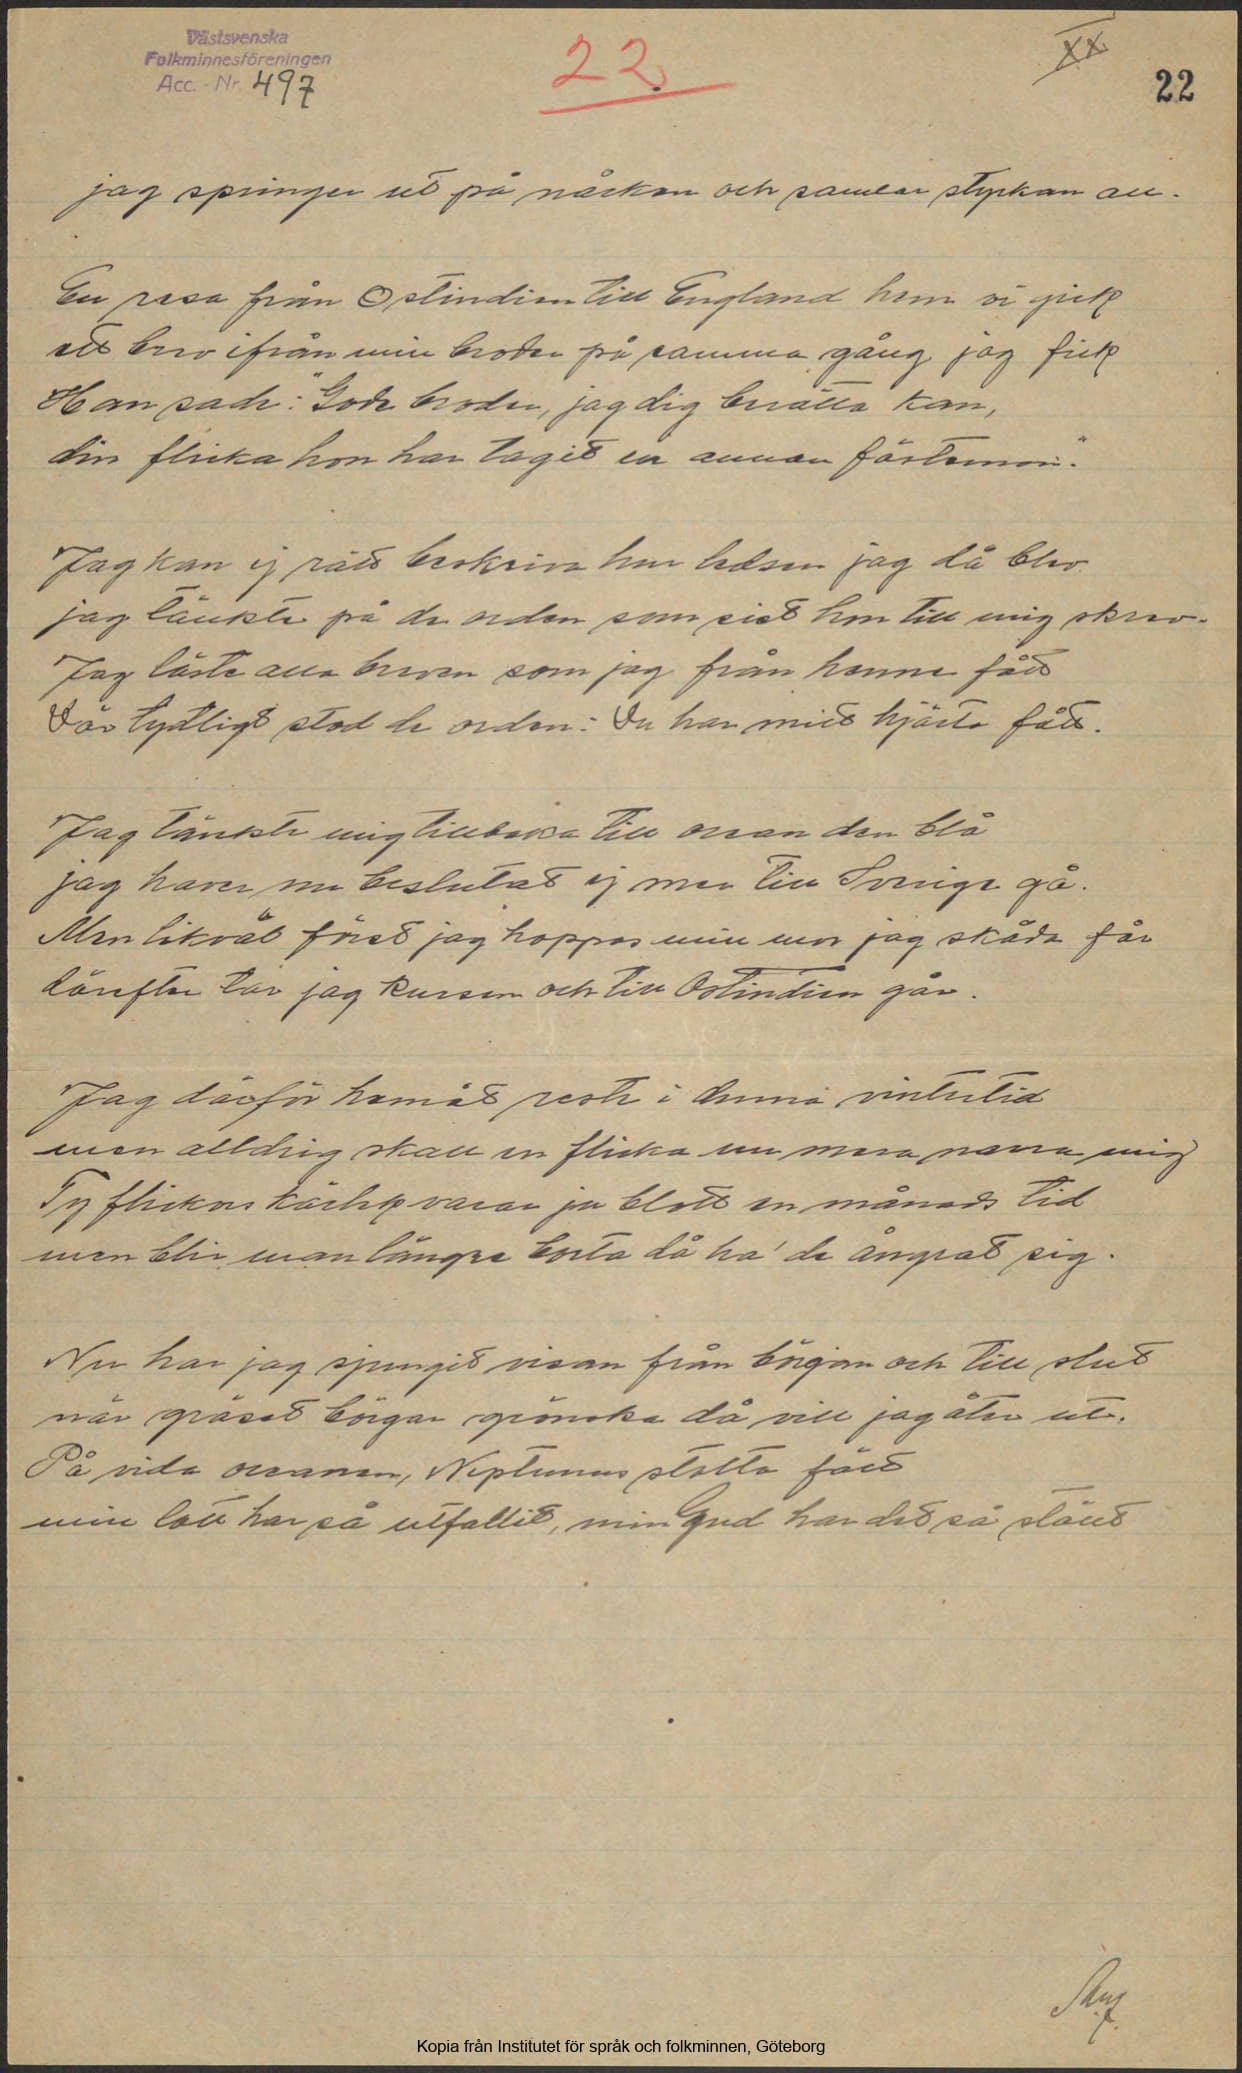 Västsvenska
Folkminnesföreningen
Acc. - Nr. 497
22
XX
22
jag springer ut på nåcken och samlar styrkan an.
En resa från Ostindien till England hem vi gick
ett brev ifrån min broder på samma gång jag fick
Han sade: "Gode broder, jag dig berätta kan,
din flicka hon har tagit en annan fästeman."
Jag kan ej rätt beskriva hur ledsen jag då blev
jag tänkte på de orden som sist hon till mig skrev.
Jag läste alla breven som jag från henne fått
Där tydligt stod de orden: Du har mitt hjärta fått.
Jag tänkte mig tillbaka till ocean den blå
jag haver nu beslutat ej mer till Sverige gå.
Men likväl först jag hoppas min mor jag skåda får
därefter tar jag kursen och till Ostindien går.
Jag därför hemåt reste i denna vintertid
men alldrig skall en flicka nu mera narra mig
Ty flickors kärlek varar ju blott en månads tid
men blir man längre borta då ha' de ångrat sig.
Nu har jag sjungit visan från börjam och till slut
när gräset börgar grönska då vill jag åter ut.
På vida oceanen, Neptunus slotta fått
min lott har så utfallit, min Gud har det så
Sång
Kopia från Institutet för språk och folkminnen, Göteborg